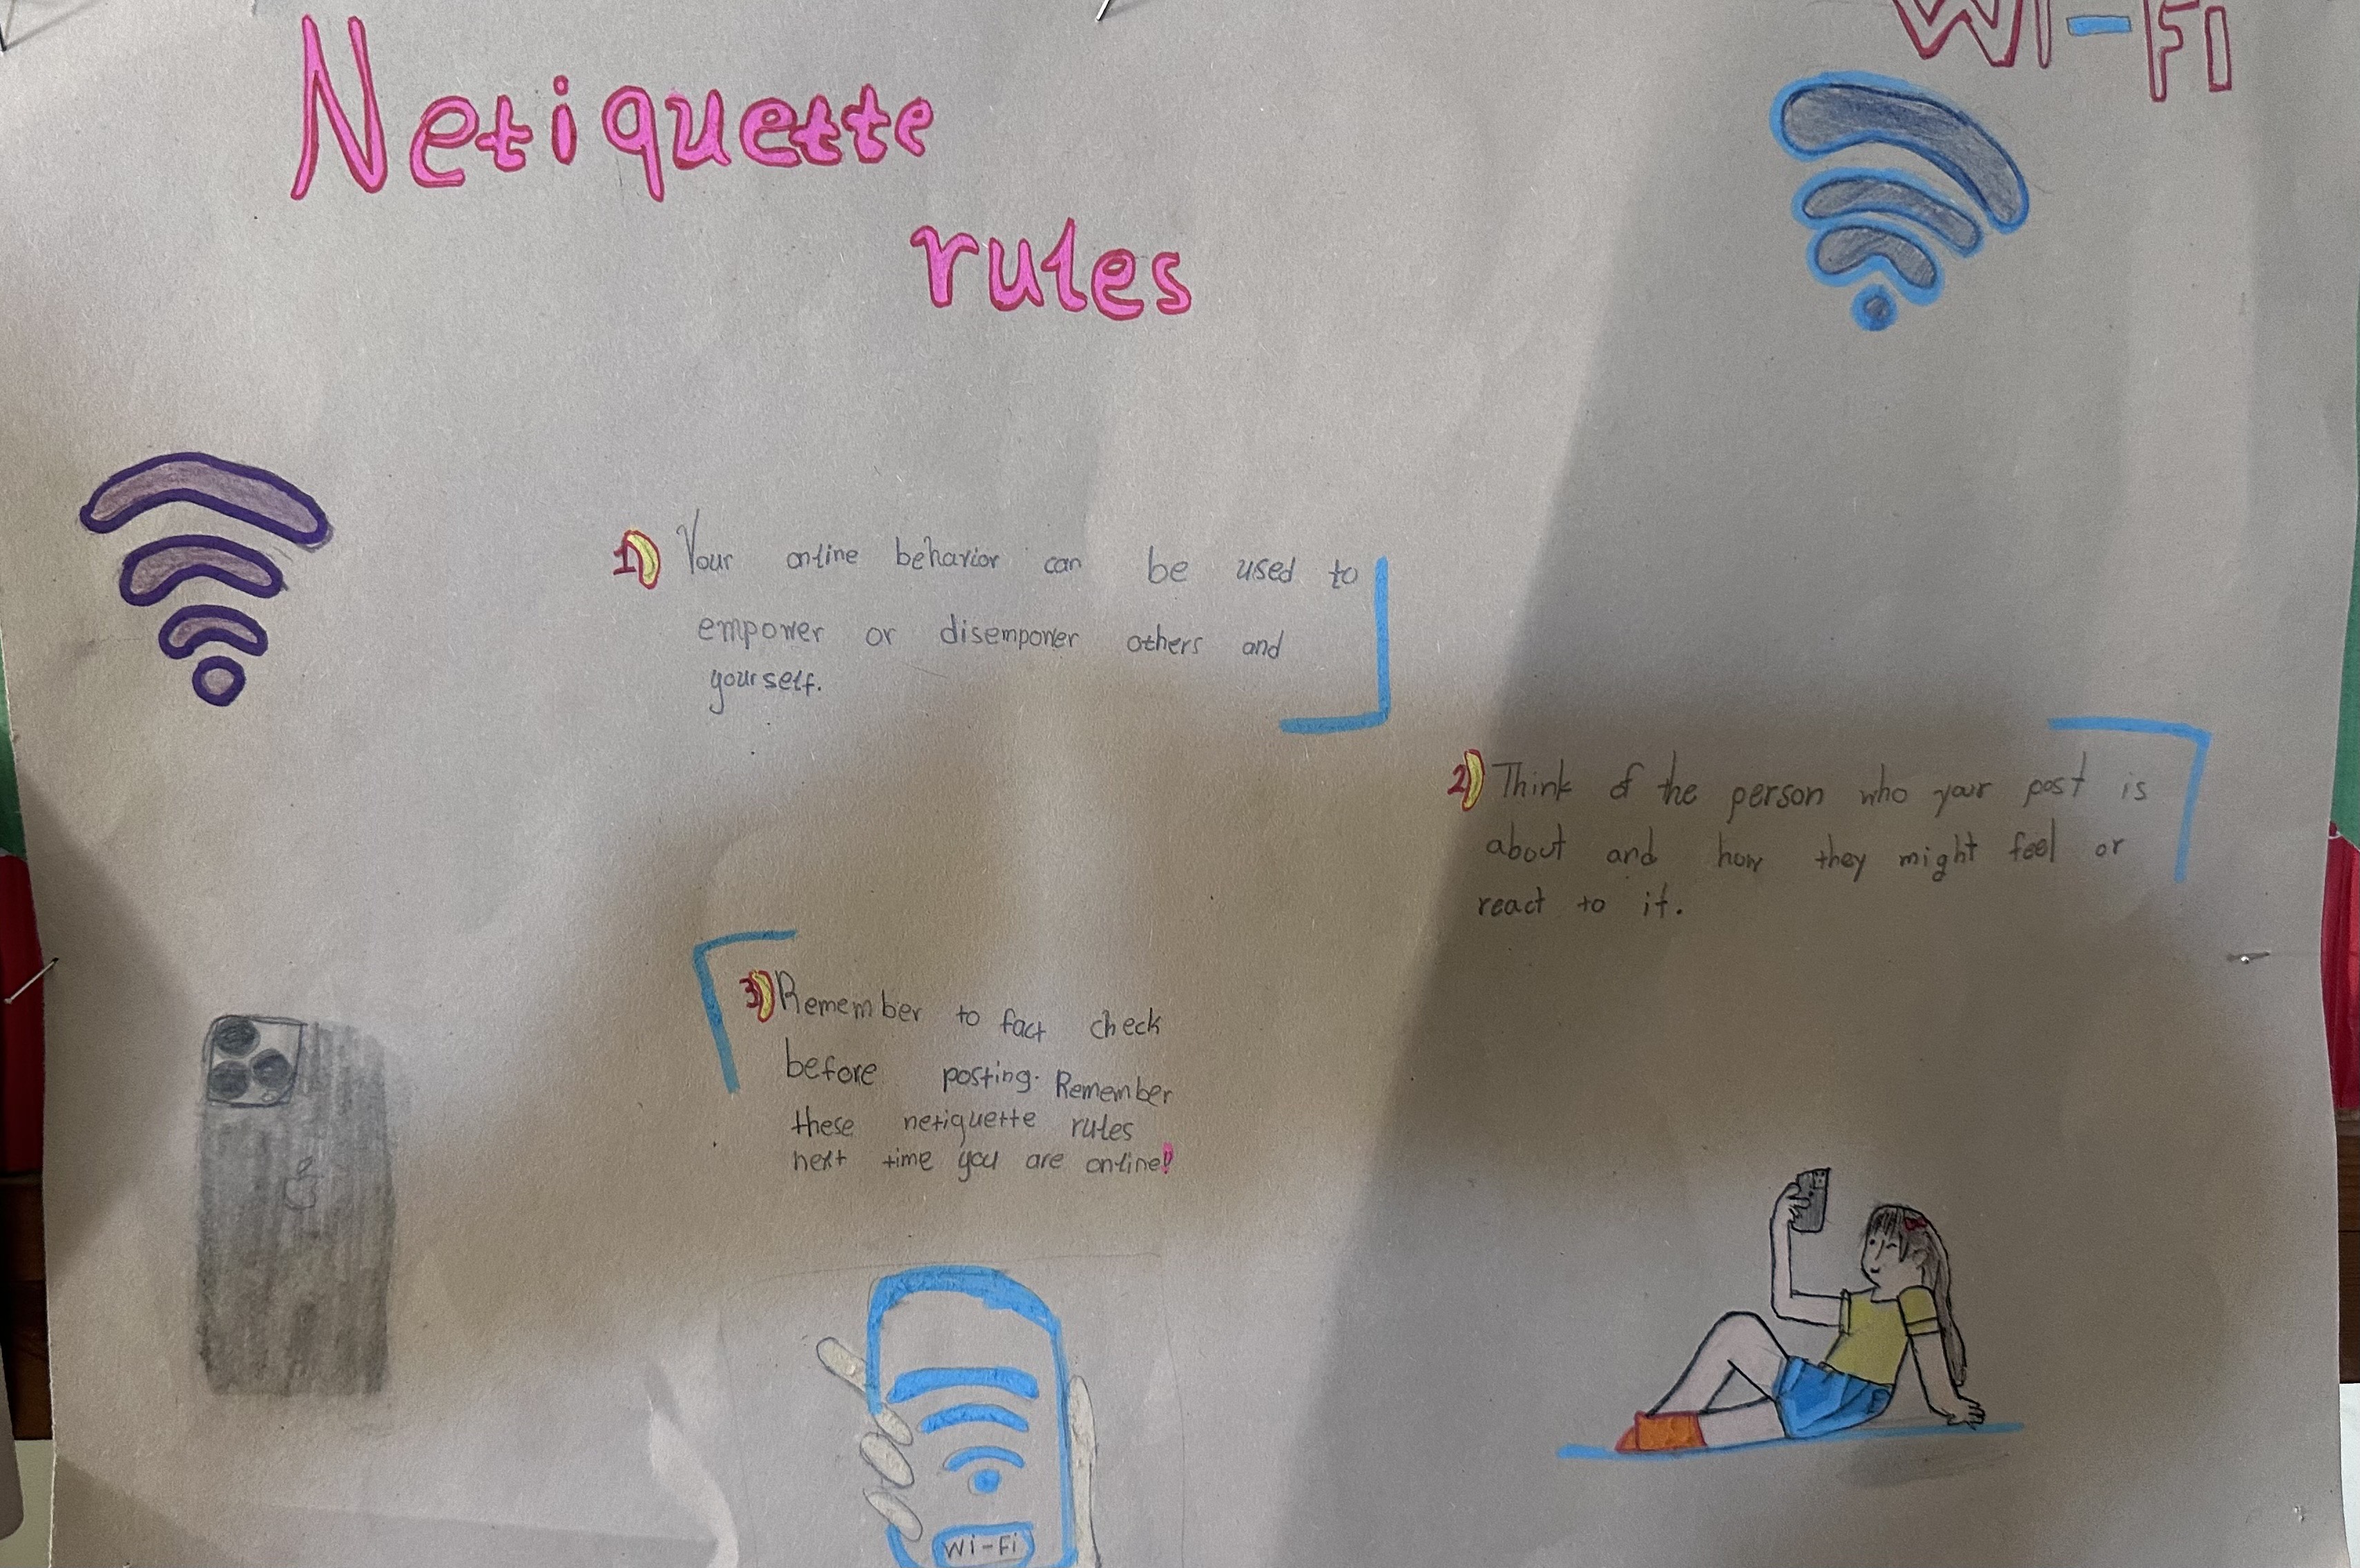 Netiquette
rules
Wi-Fi
1) Your online behavior can be used to
empower or disempower others and
yourself.
2) Think of the person who your post is
about and how they might feel or
react to it.
3) Remember to fact check
before posting. Remember
these netiquette rules
next time you are online!
Wi-Fi